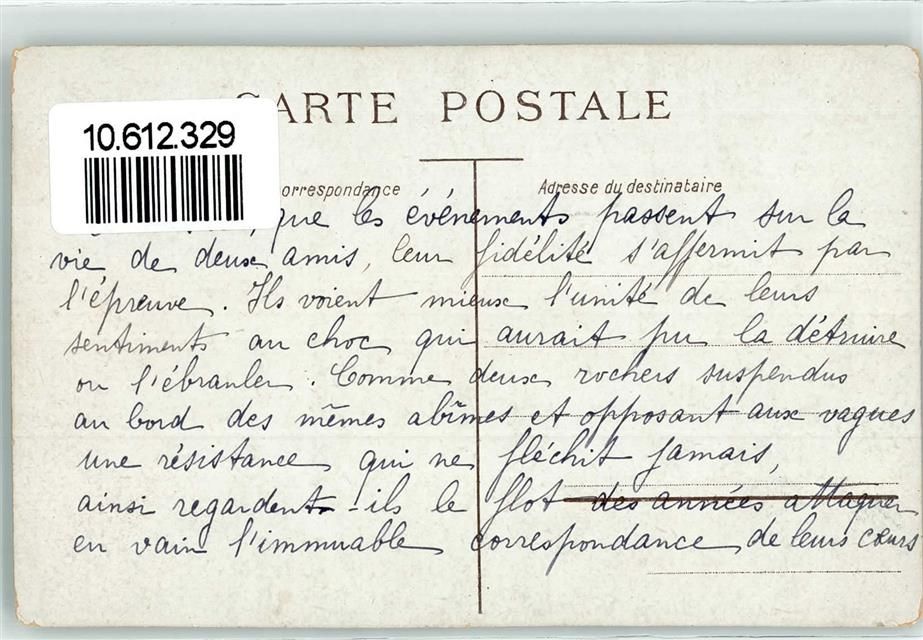 CARTE POSTALE
10.612.329
orrespondance
Adresse du destinataire
que les événements passent sur la
vie de deux amis, leur fidélité s'affermit par
l'épreuve. Ils voient mieux l'unité de leurs
sentiments au choc qui aurait pu la détruire
ou l'ébranler. Comme deux rochers suspendus
au bord des mêmes abîmes et opposant aux vagues
une résistance qui ne fléchit jamais,
ainsi regardent-ils le flot des années attaquer
en vain l'immuable correspondance de leurs cœurs